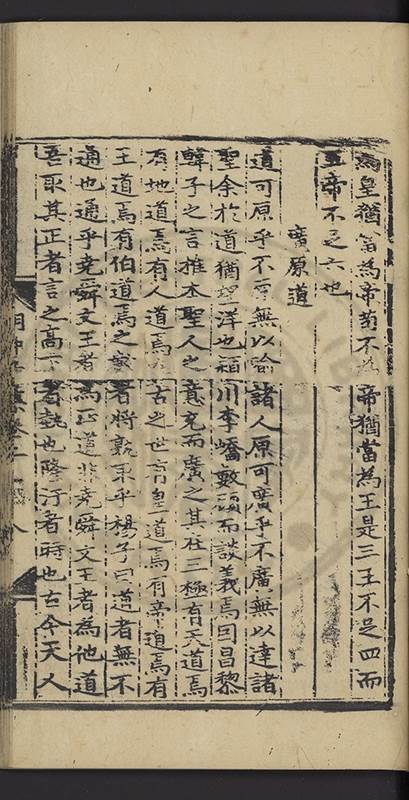 為皇猶當為帝苟不為帝猶當為王是三王不足四而
五帝不足六也
廣原道
道可原乎不原無以喻諸人原可廣乎不廣無以達諸
聖余於道猶望洋也潁川李嶠數頭而談義焉因昌黎
韓子之言推本聖人之意充而廣之其在三極有天道焉
有地道焉有人道焉古之世有皇道焉有帝道焉有
王道焉有伯道焉之數者將孰取乎楊子曰道者無不
通也通乎堯舜文王者為正道非堯舜文王者為他道
吾取其正者言之高下者執也隆汙者時也古今天人